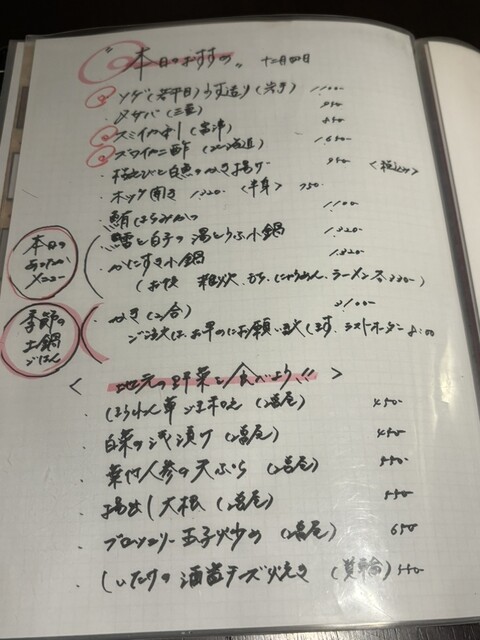 "本日のおすすめ" 十二月四日
ソゲ(若平目)うす造り 1,100-
〆サバ(三重) 950-
スミイカ刺し 850-
ズワイカニ酢(北海道) 1,650-
・桜えびと白魚のかき揚げ 950- <税込み>
・ホッケ開き 1,320- <半身> 750-
・鮪ほほみかつ 1,100-
本日のあったかメニュー
・鱈と白子の湯とうふ小鍋 1,320-
・かにすき小鍋 1,320-
(お供 雑炊、もち、にゅうめん、ラーメン 各330-)
季節の土鍋ごはん
・かき(2合) 2,100-
ご注文はお早めにお願い致します。ラストオーダー8:00
< 地元の野菜を食べよう!! >
・ほうれん草ごま和え 450-
・白菜の浅漬け 450-
・葉付人参の天ぷら 550-
・揚出し大根 550-
・ブロッコリー玉子炒め 650-
・しいたけの酒盗チーズ焼き (箕輪) 550-